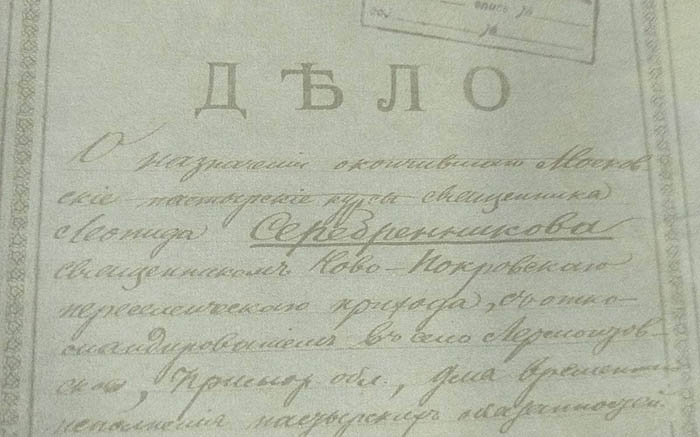 опись №
№
ДѢЛО
О назначеніи окончившаго Москов-
скіе пастырскіе курсы священника
Леонида Серебренникова
священникомъ Ново-Покровскаго
переселенческаго прихода, съ отко-
мандированіемъ въ село Лермонтов-
ское, Примор. обл., для временнаго
исполненія пастырскихъ обязанностей.